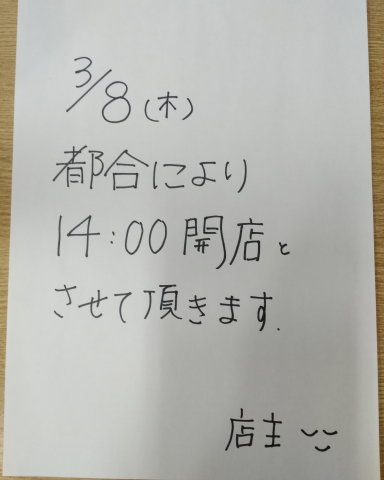 3/8(木)
都合により
14:00 開店と
させて頂きます.
店主